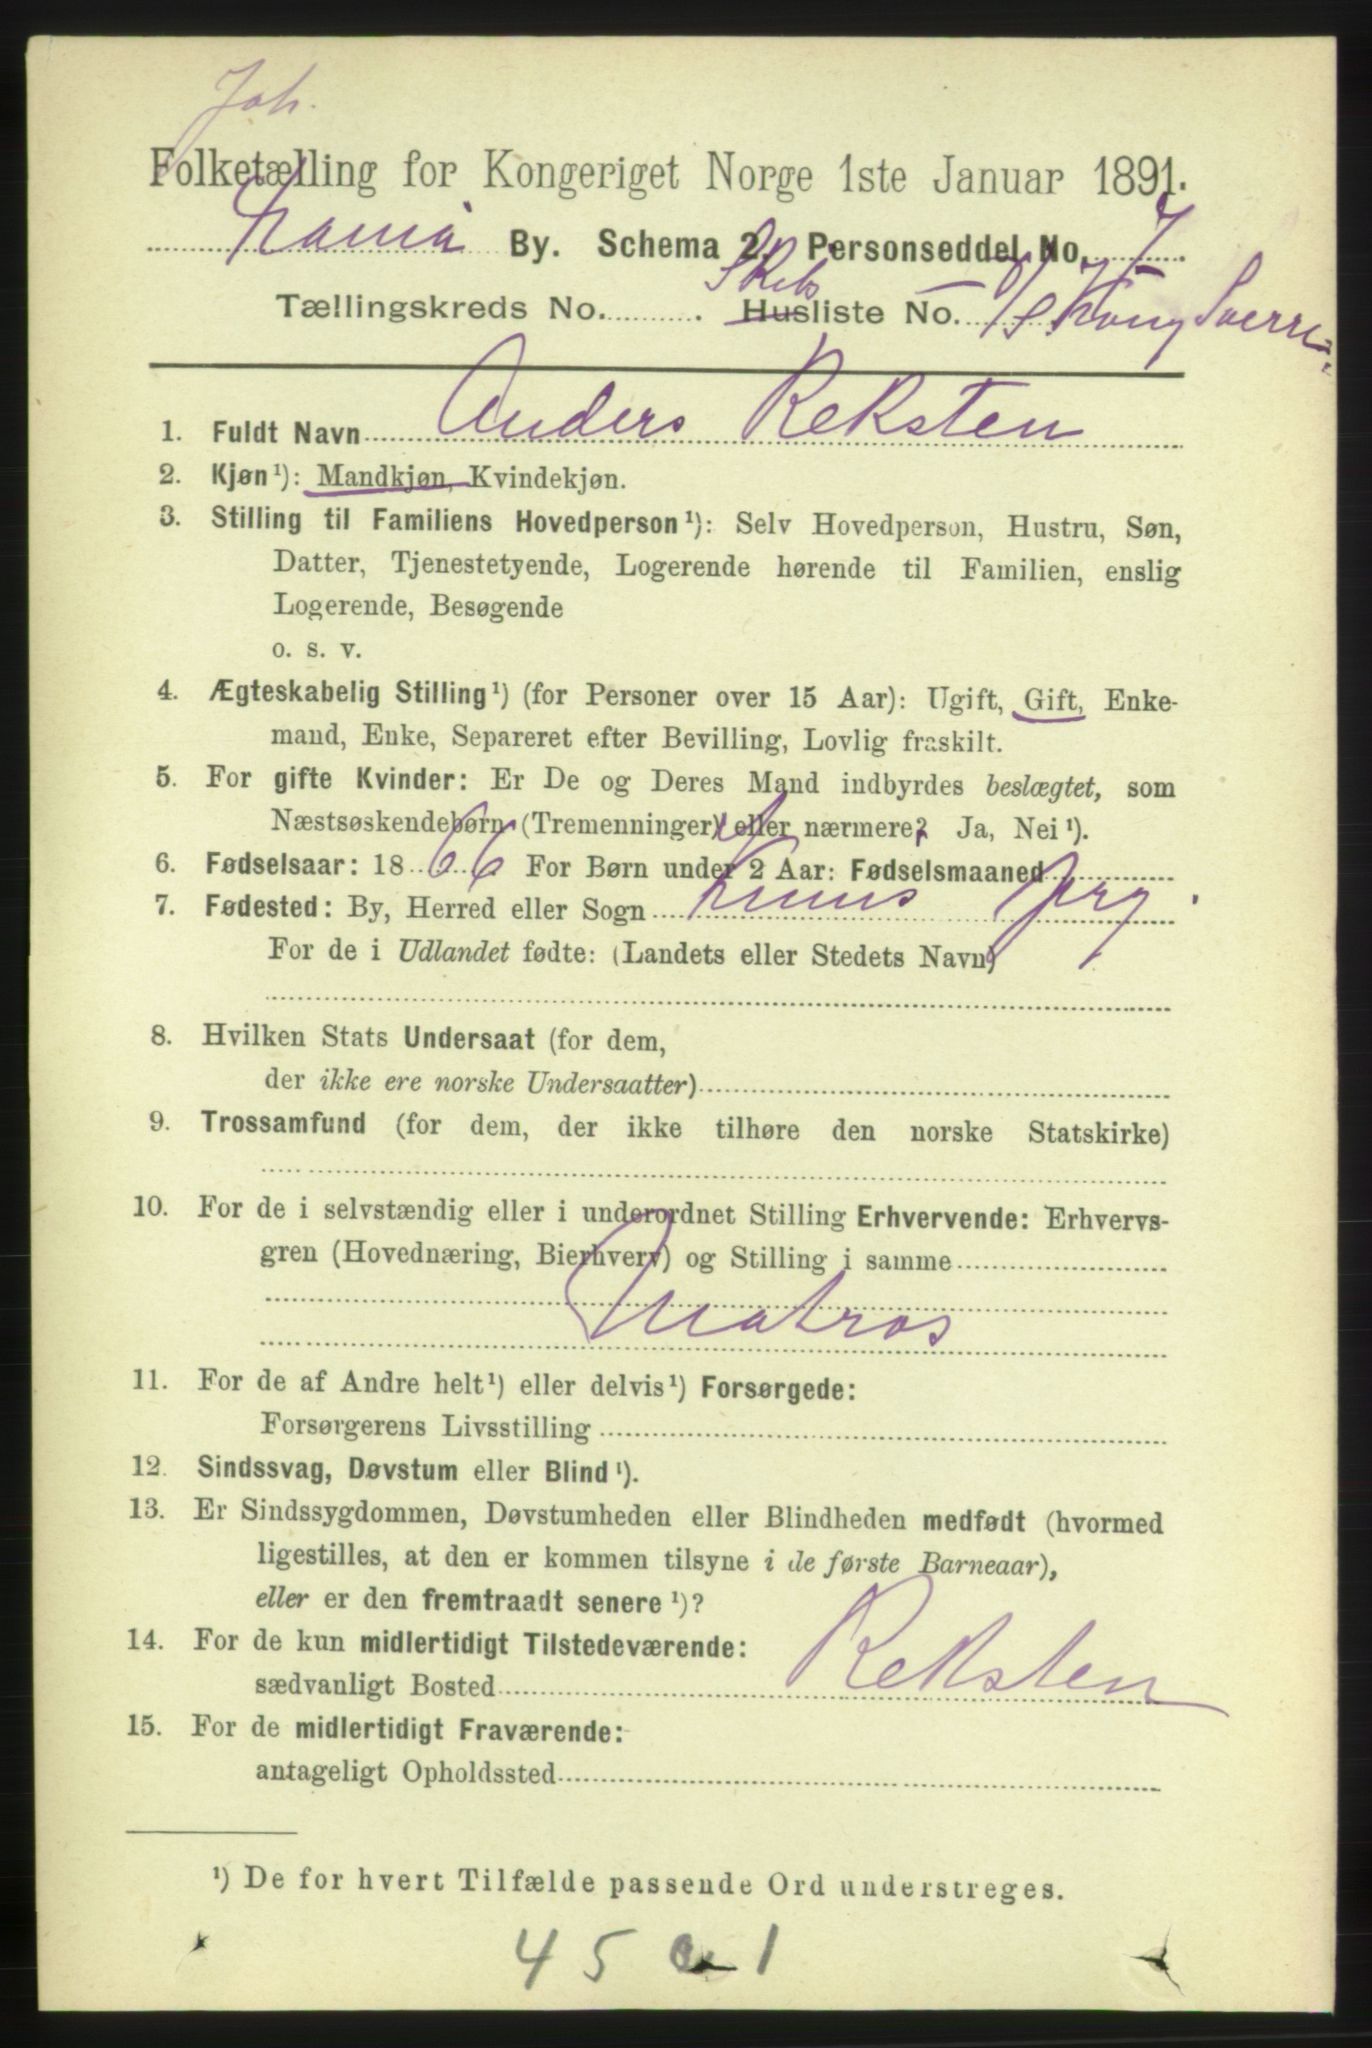 Joh.
Folketælling for Kongeriget Norge 1ste Januar 1891.
By. Schema 2. Personseddel No. 7.
Tællingskreds No. . Skibs Husliste No. D/S Kong Sverre
1. Fuldt Navn Anders Reksten
2. Kjøn¹): Mandkjøn, Kvindekjøn.
3. Stilling til Familiens Hovedperson¹): Selv Hovedperson, Hustru, Søn,
Datter, Tjenestetyende, Logerende hørende til Familien, enslig
Logerende, Besøgende
o. s. v.
4. Ægteskabelig Stilling¹) (for Personer over 15 Aar): Ugift, Gift, Enke-
mand, Enke, Separeret efter Bevilling, Lovlig fraskilt.
5. For gifte Kvinder: Er De og Deres Mand indbyrdes beslægtet, som
Næstsøskendebørn (Tremenninger) eller nærmere? Ja, Nei¹).
6. Fødselsaar: 1866 For Børn under 2 Aar: Fødselsmaaned
7. Fødested: By, Herred eller Sogn Kinns Prg.
For de i Udlandet fødte: (Landets eller Stedets Navn)
8. Hvilken Stats Undersaat (for dem,
der ikke ere norske Undersaatter)
9. Trossamfund (for dem, der ikke tilhøre den norske Statskirke)
10. For de i selvstændig eller i underordnet Stilling Erhvervende: Erhvervs-
gren (Hovednæring, Bierhverv) og Stilling i samme
Matros
11. For de af Andre helt¹) eller delvis¹) Forsørgede:
Forsørgerens Livsstilling
12. Sindssvag, Døvstum eller Blind¹).
13. Er Sindssygdommen, Døvstumheden eller Blindheden medfødt (hvormed
ligestilles, at den er kommen tilsyne i de første Barneaar),
eller er den fremtraadt senere¹)?
14. For de kun midlertidigt Tilstedeværende:
sædvanligt Bosted Reksten
15. For de midlertidigt Fraværende:
antageligt Opholdssted
¹) De for hvert Tilfælde passende Ord understreges.